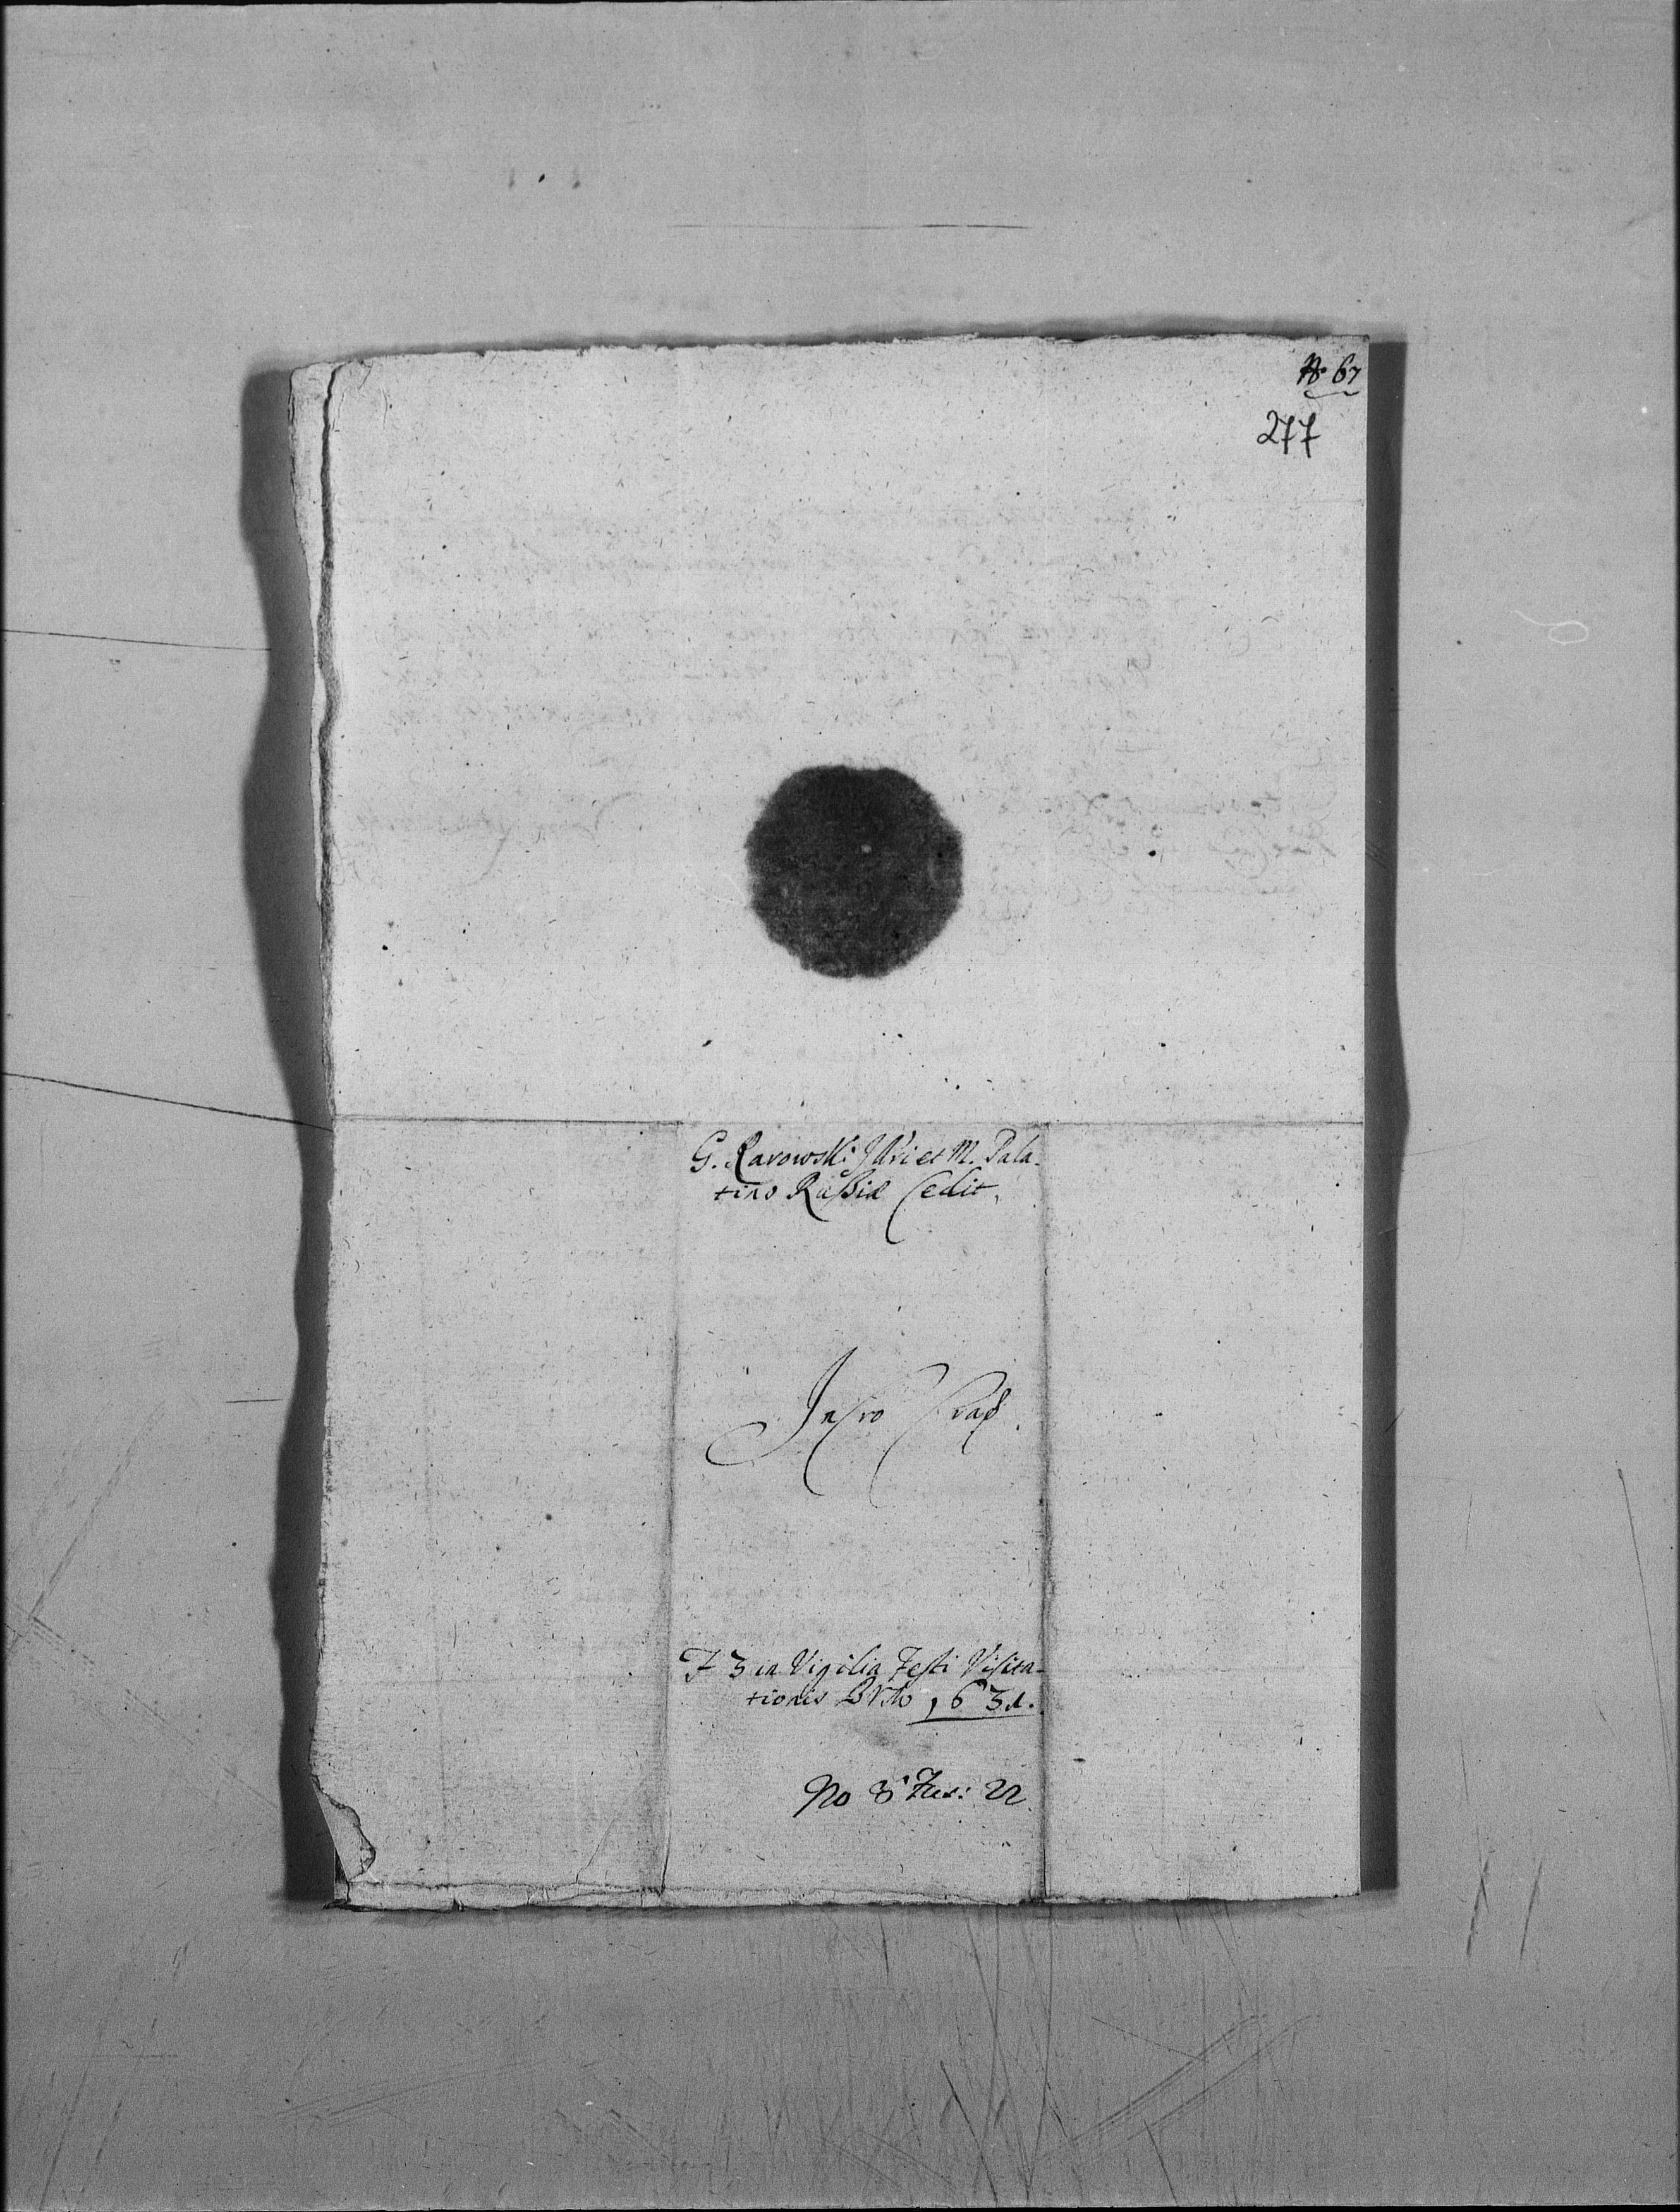 No 67
277
G. Rarowski Illri et M. Pala-
tino Russiæ Cedit,
In Cro Cras.
F 3 in Vigilia Festi Visita-
tionis BVM 1631.
No 8 Fas: 22